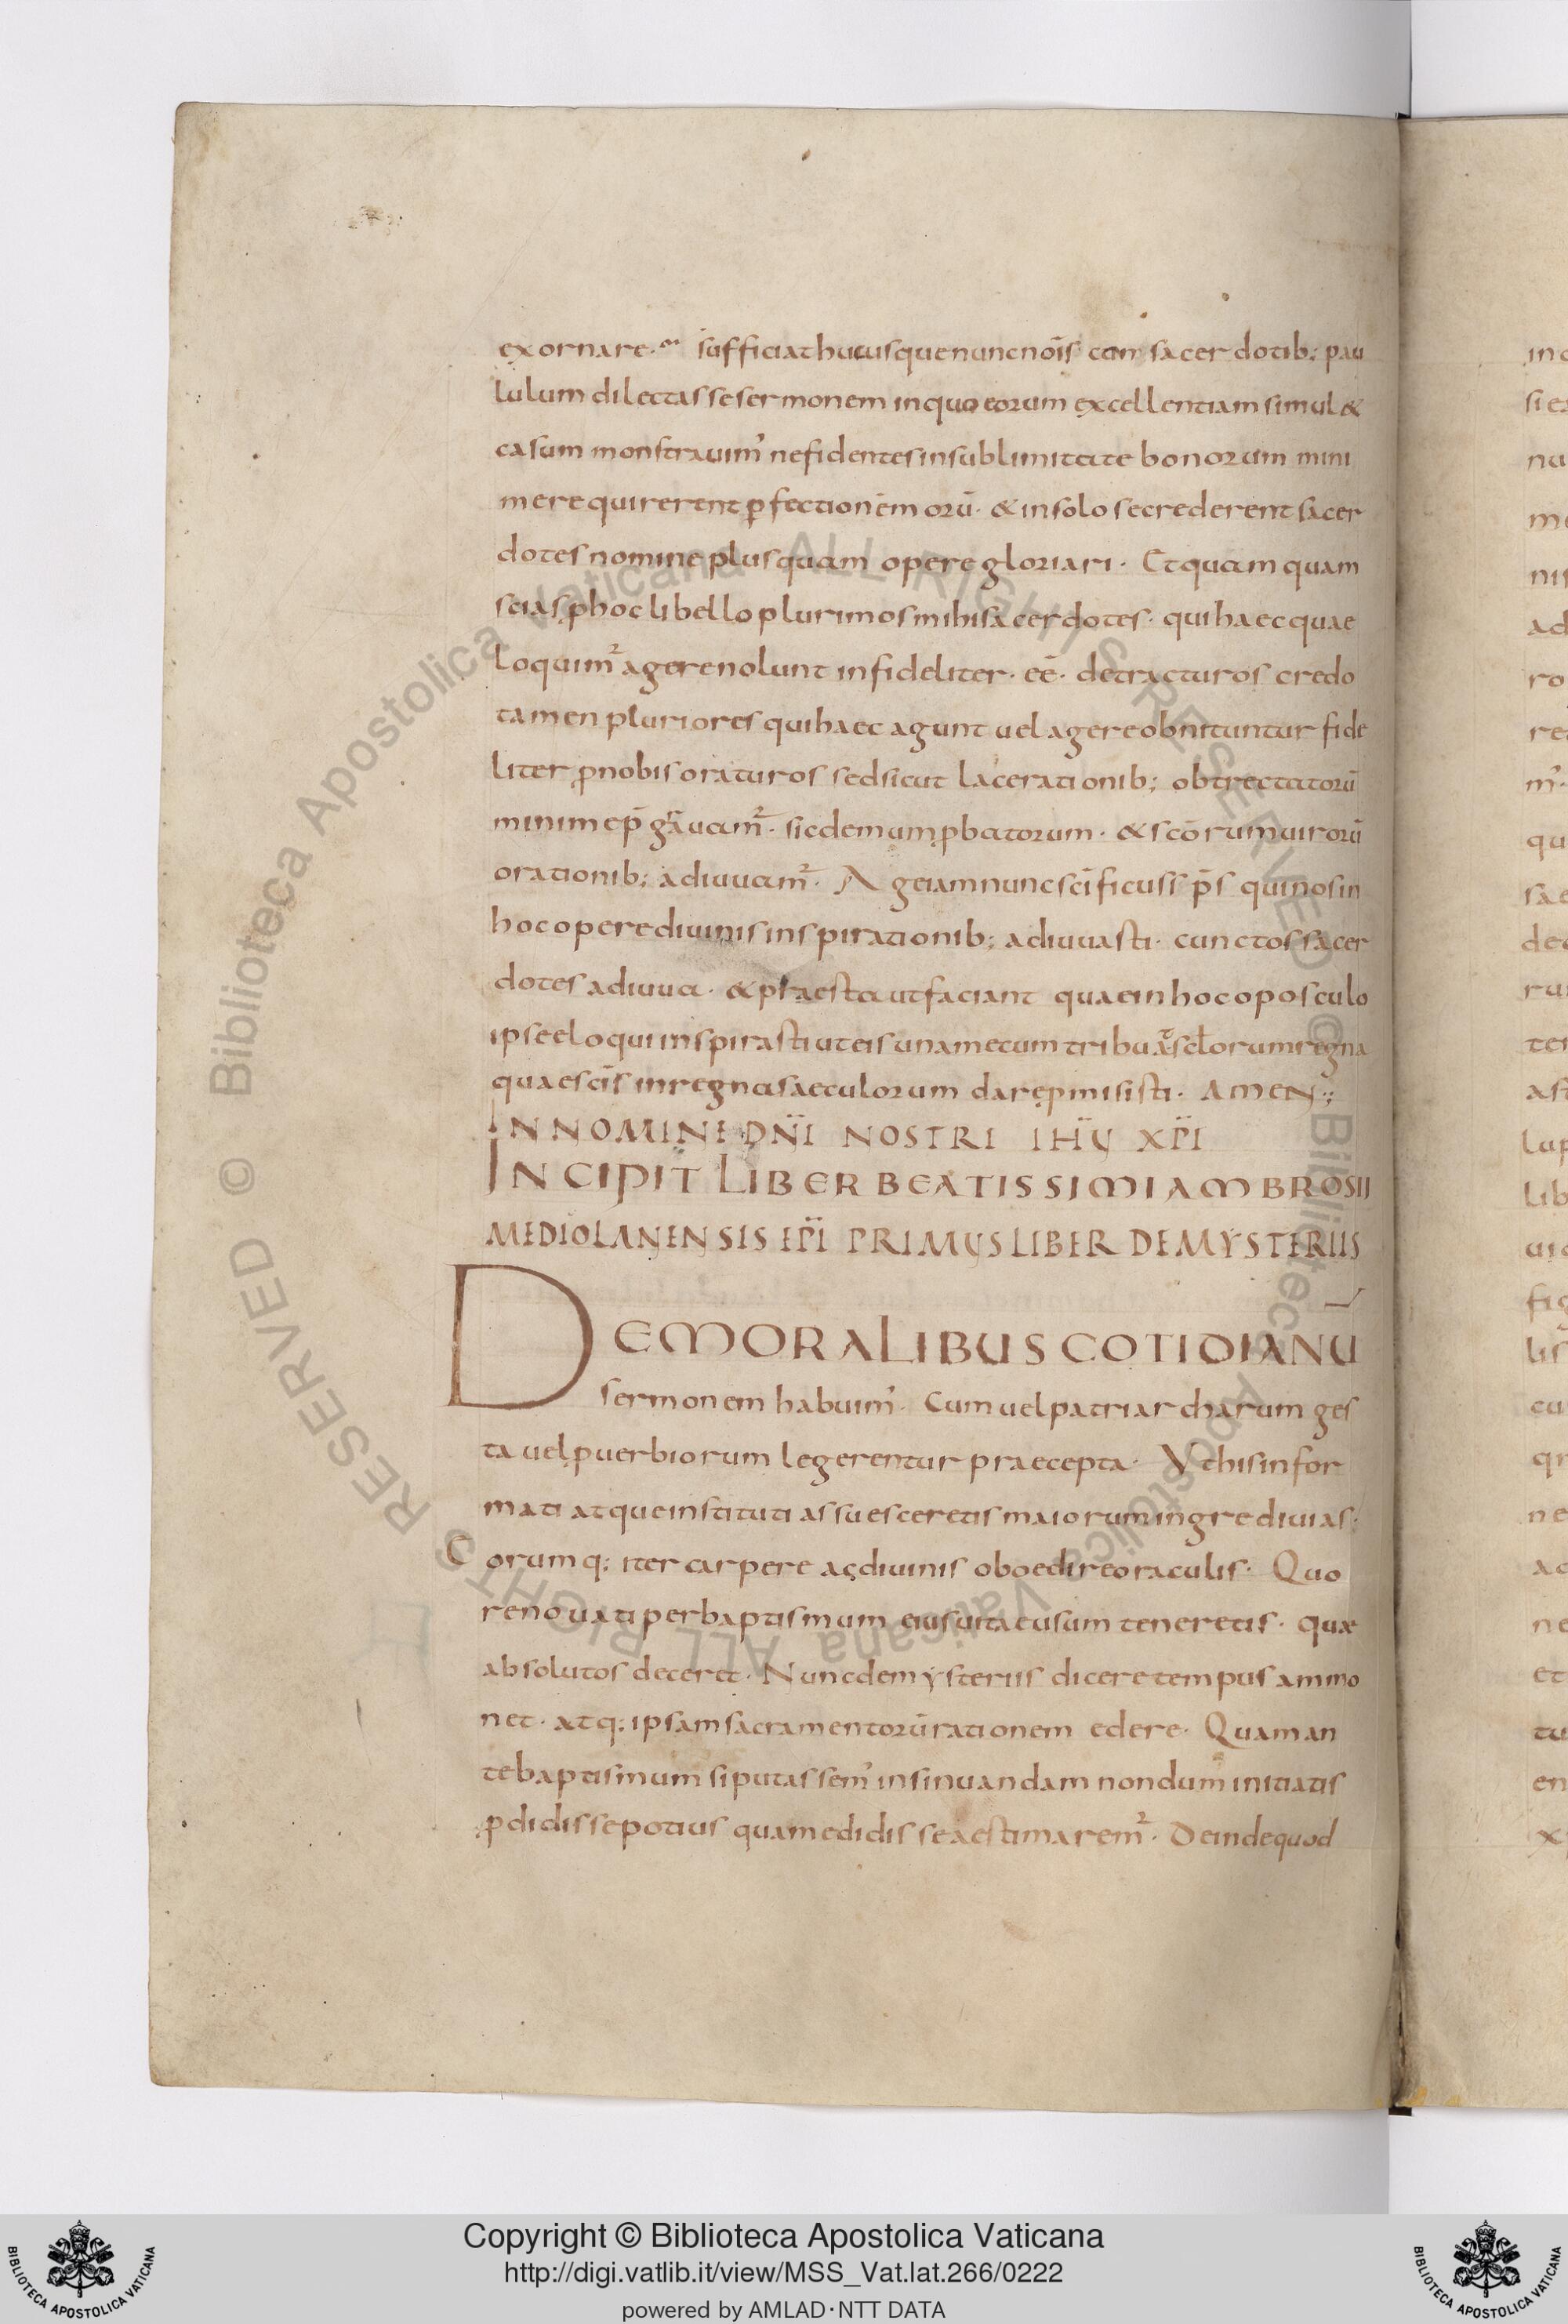 exornare. sufficiat hucusque nunc nob̄is cum sacerdotib; pau
lulum dilectasse sermonem in quo eorum excellentiam simul &
casum monstrauim' ne fidentes in sublimitate bonorum mini
me requirerent ꝑfectionem morū· & in solo se crederent sacer
dotes nomine plusquam opere gloriari· Et quam quam
scias ꝑ hoc libello plurimos mihi sacerdotes· qui haec quae
loquim² agere nolunt infideliter· eē· detracturos credo
tamen pluriores qui haec agunt uel agere obnituntur fide
liter ꝓ nobis oraturos sed sicut lacerationib; obtrectatorū
minime p̄grauam²· sic demum ꝓbatorum· & sc̄orum uirorū
orationib; adiuuam²· Age iam nunc sc̄ificus sp̄s qui nos in
hoc opere diuinis inspirationib; adiuuasti· cunctos sacer
dotes adiuua· & praesta ut faciant quae in hoc oposculo
ipse eloqui inspirasti ut eis una mecum tribuas sc̄lorum regna
quae sc̄is in regna saeculorum dare ꝓmisisti· AMEN·;
IN NOMINE DN̄I NOSTRI IHŪ XP̄I
INCIPIT LIBER BEATISSIMI AMBROSII
MEDIOLANENSIS EP̄I PRIMUS LIBER DE MYSTERIIS
DE MORALIBUS COTIDIANU
sermonem habuim'· Cum uel patriarcharum ges
ta uel ꝓuerbiorum legerentur praecepta· Vt his infor
mati atque instituti assuesceretis maiorum ingredi uias·
Eorumq; iter carpere ac diuinis oboedire oraculis· Quo
renouati per baptismum eius uitae usum teneretis· quæ
absolutos deceret· Nunc de mysteriis dicere tempus ammo
net· atq; ipsam sacramentorū rationem edere· Quam an
te baptismum si putassem' insinuandam nondum initiatis
ꝓdidisse potius quam edidisse aestimarem²· Deinde quod
Copyright © Biblioteca Apostolica Vaticana
http://digi.vatlib.it/view/MSS_Vat.lat.266/0222
powered by AMLAD·NTT DATA
BIBLIOTECA APOSTOLICA VATICANA
BIBLIOTECA APOSTOLICA VATICANA
© Biblioteca Apostolica Vaticana ALL RIGHTS RESERVED
© Biblioteca Apostolica Vaticana ALL RIGHTS RESERVED